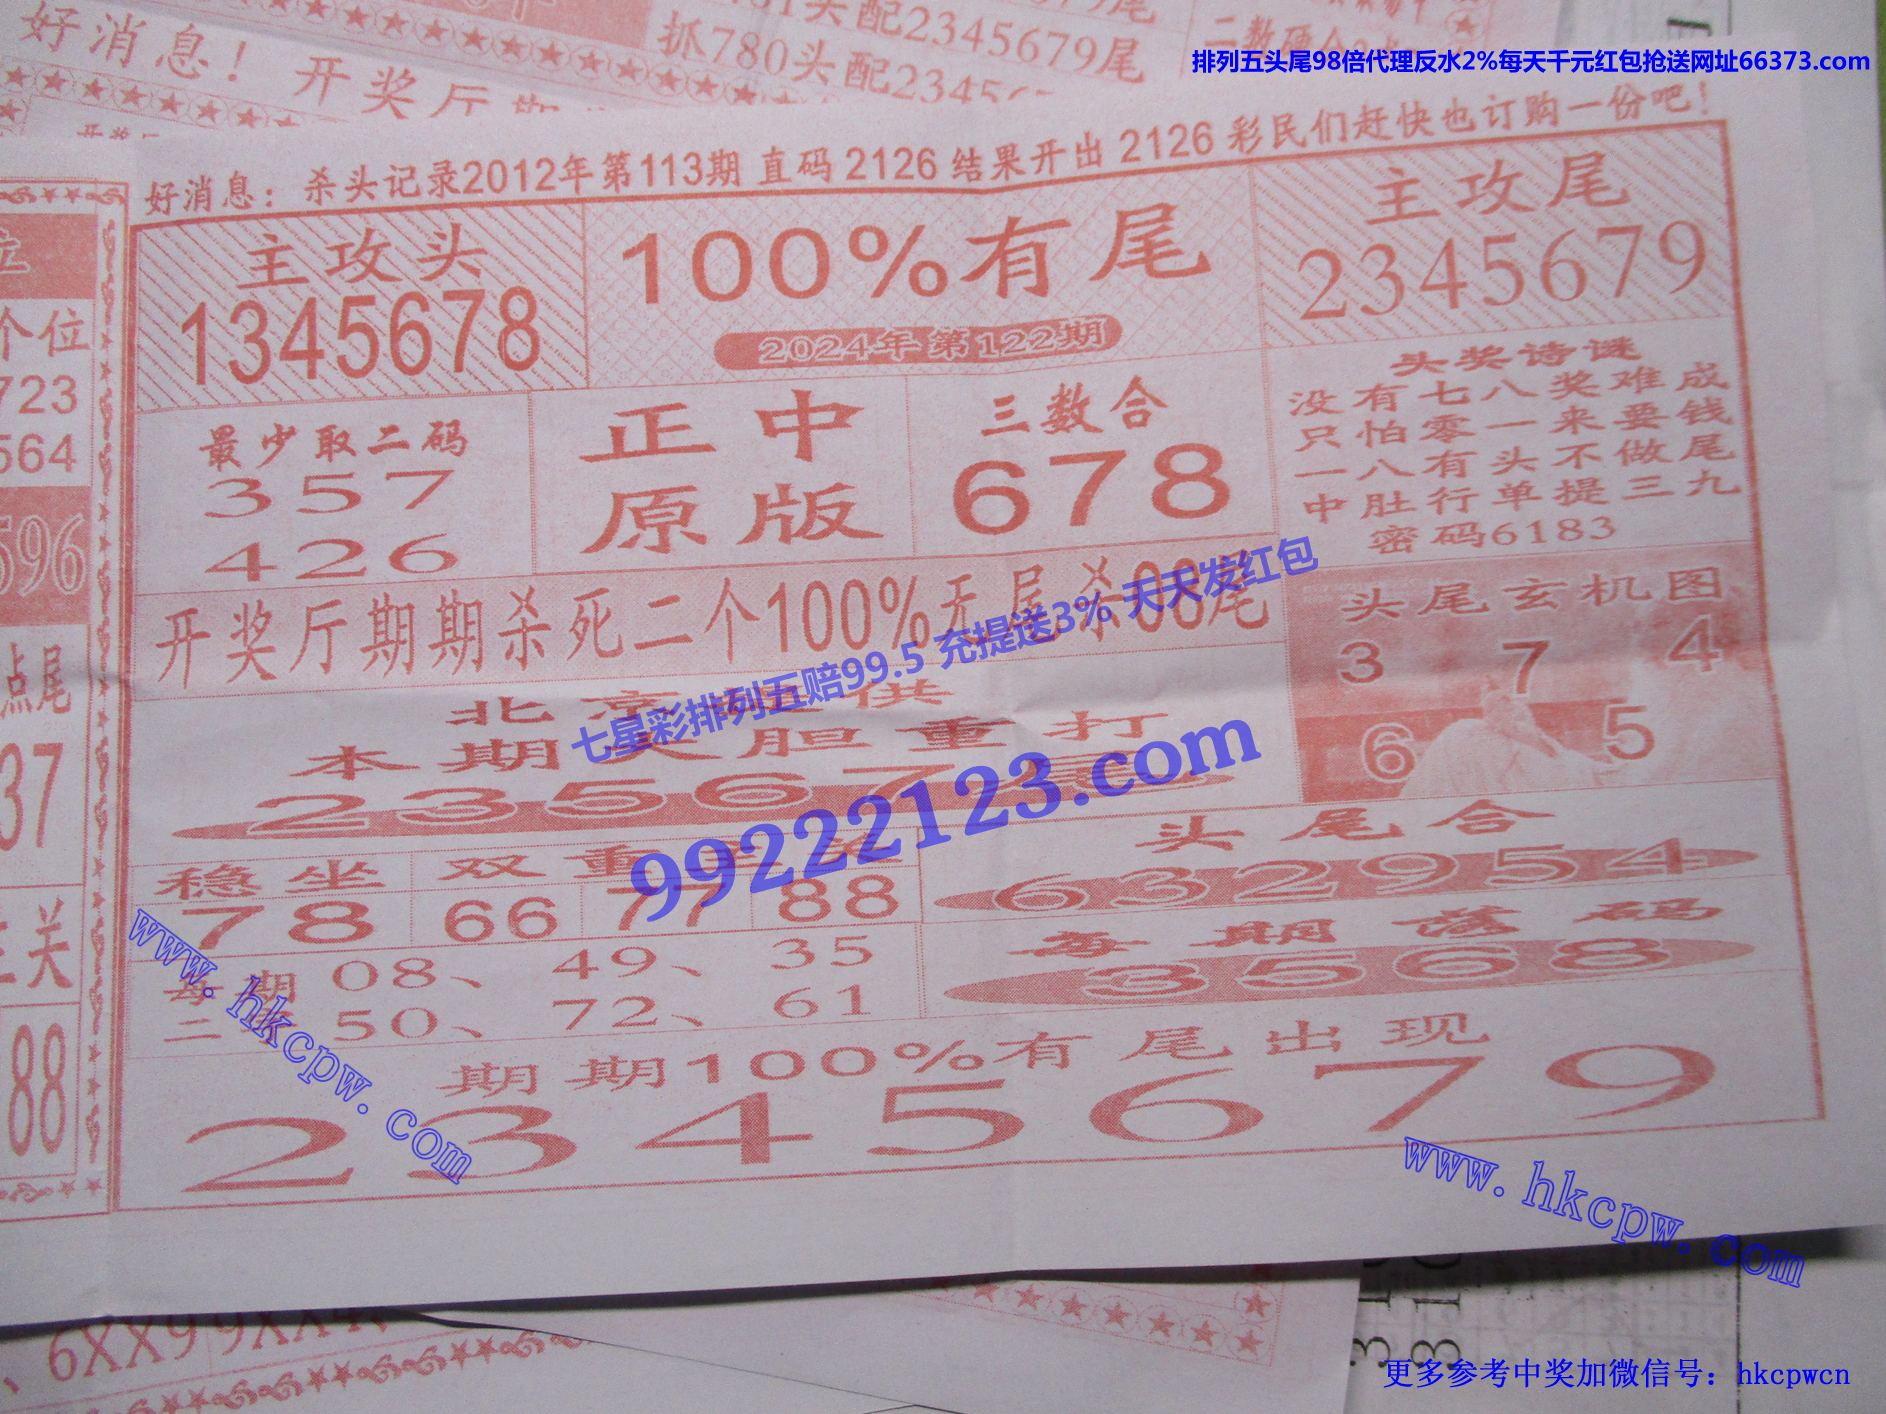 好消息！开奖厅
抓780头配2345679尾
排列五头尾98倍代理反水2%每天千元红包抢送网址66373.com
好消息：杀头记录2012年第113期 直码 2126 结果开出 2126 彩民们赶快也订购一份吧！
主攻头
1345678
100%有尾
2024年 第122期
主攻尾
2345679
最少取二码
357
426
正中
原版
三数合
678
头奖诗谜
没有七八奖难成
只怕零一来要钱
一八有头不做尾
中肚行单提三九
密码6183
开奖厅期期杀死二个100%无尾杀08尾
头尾玄机图
3 7 4
6 5
七星彩排列五赔99.5 充提送3% 天天发红包
本期
重打
23567
99222123.com
稳坐
78
双重
66 77 88
头尾合
632954
每期落码
3568
每期 08、49、35
50、72、61
期期100%有尾出现
2345679
个位
723
564
596
点尾
37
关
88
www.hkcpw.com
www.hkcpw.com
6XX9
更多参考中奖加微信号：hkcpwcn